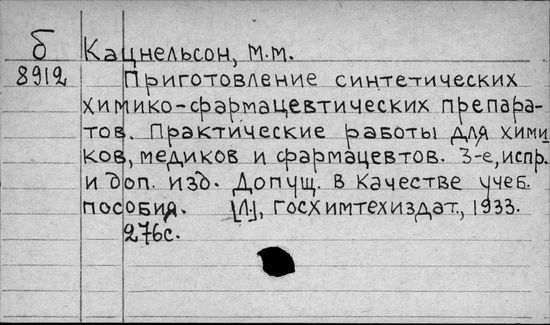 б Кацнельсон, М.М.
8912 Приготовление синтетических
химико-фармацевтических препара-
тов. Практические работы для хими
ков, медиков и фармацевтов. 3-е, испр.
и доп. изд. Допущ. в качестве учеб.
пособия. [Л.], Госхимтехиздат., 1933.
276с.